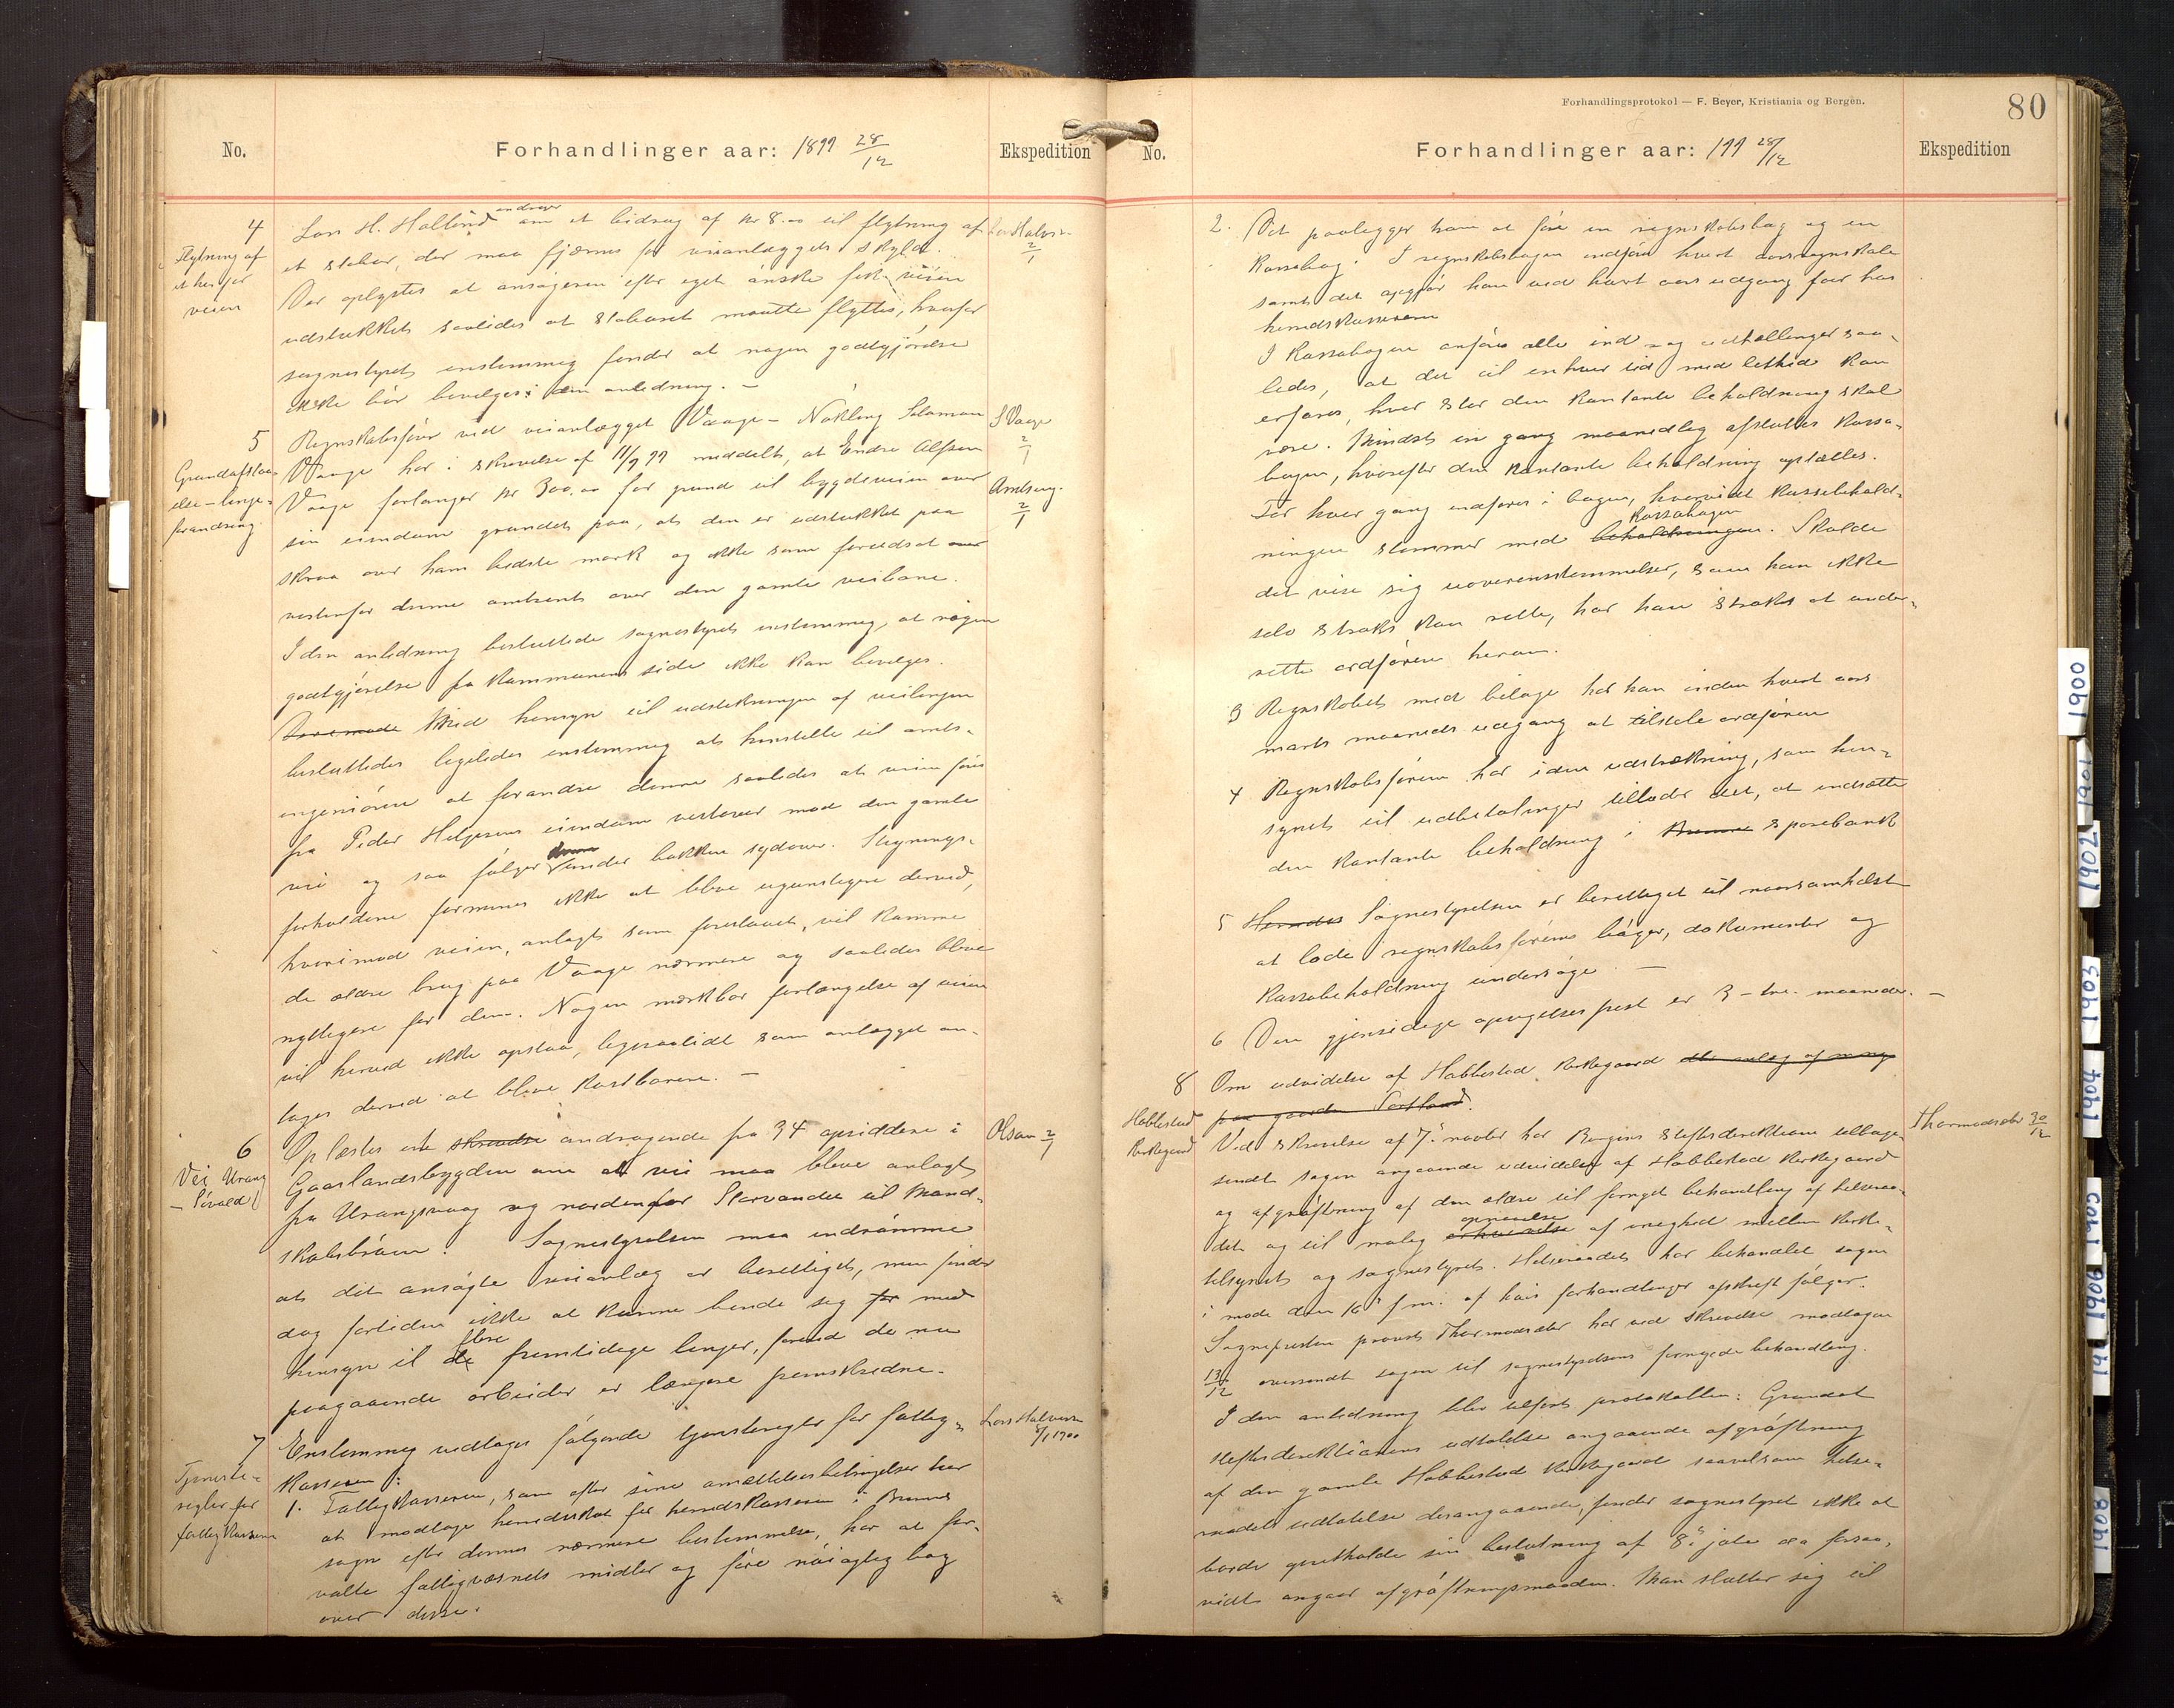 No.
Forhandlinger aar: 1899 28/12
Ekspedition
4
Flytning af
et hus for
veien
Lars H. Halleind andrager om et bidrag af kr 8.00 til flytning af
et stabur, der maa fjernes for veianlæggets skyld.
Der oplystes at ansøgeren efter eget ønske fik veien
udstukket saaledes at staburet maatte flyttes, hvorfor
sognestyret enstemmig finder at nogen godtgjørelse
ikke bør bevilges i den anledning. —
Lars Halvors.
2/1
5
Grundafstaa-
else – linje-
forandring
Regnskabsfører ved veianlægget Vaage – Nökling Salamon
Vaage har i skrivelse af 11/9 99 meddelt, at Endre Alfsen
Vaage forlanger kr 300.00 for grund til bygdeveien over
sin eiendom grundet paa, at den er udstukket paa
skraa over hans bedste mark og ikke som forudsat over
vestenfor denne omtrent over den gamle veibane.
I den anledning besluttede sognestyret enstemmig, at nogen
godtgjørelse fra kommunens side ikke kan bevilges.
Med hensyn til udstikningen af veilinjen
besluttedes ligeledes enstemmig at henstille til amts-
ingeniøren at forandre denne saaledes at veien føres
fra Peder Helgesens eiendom vestover mod den gamle
vei og saa følger denne under bakken sydover. Stignings-
forholdene formenes ikke at blive ugunstigere derved,
hvorimod veien, anlagt som foreslaaet, vil komme
de ældre brug paa Vaage nærmere og saaledes blive
nyttigere for dem. Nogen mærkbar forlængelse af veien
vil herved ikke opstaa, ligesaalidt som anlægget an-
tages derved at blive kostbarere. —
S Vaage
2/1
Amtsing.
2/1
6
Vei Urang
– Sivald
Oplæstes et skrivelse andragende fra 34 opsiddere i
Gaaslandsbygden om at vei maa blive anlagt
fra Urangsvaag og nordenfor Storvandet til Mand-
skabsbraum. Sognestyrelsen maa indrømme
at det ansøgte veianlæg er berettiget, men finder
dog fortiden ikke at kunne binde sig for med
hensyn til de flere fremtidige linjer, førend de nu
paagaaende arbeider er længere fremskredne.
Olsen 2/1
7
Tjeneste-
regler for
fattigkasseren
Enstemmig vedtages følgende tjenesteregler for fattig-
kasseren:
1. Fattigkasseren, som efter sine ansættelsesbetingelser har
at modtage herredsskat for herredskasseren i Bremnes
sogn efter dennes nærmere bestemmelse, har at for-
valte fattigvæsnets midler og føre nøiagtig bog
over disse.
Lars Halvorsen
8/1 1900
Forhandlingsprotokol — F. Beyer, Kristiania og Bergen.
80
No.
Forhandlinger aar: 199 28/12
Ekspedition
2. Det paalægger ham at føre en regnskabsbog og en
kassabog. I regnskabsbogen indføres hvert aarsregnskab
samt det opgjør han ved hvert aars udgang faar hos
herredskassereren
I kassabogen anføres alle ind- og udtællinger saa-
ledes, at det til enhver tid med lethed kan
erfares, hvor stor den kontante beholdning skal
være. Mindst en gang maanedlig afsluttes kassa-
bogen, hvorefter den kontante beholdning optælles.
For hver gang indføres i bogen, hvorvidt kassebehold-
ningen stemmer med beholdningen kassabogen. Skulde
det vise sig uoverensstemmelser, som han ikke
selv straks kan rette, har han straks at under-
rette ordføreren herom.
3 Regnskabet med bilage har han inden hvert aars
marts maaneds udgang at tilstille ordføreren
4 Regnskabsføreren har i den udstrækning, som hen-
synet til udbetalinger tillader det, at indsætte
den kontante beholdning i Bremnes sparebank
5 Herreds Sognestyrelsen er berettiget til naarsomhelst
at lade regnskabsførerens bøger, dokumenter og
kassabeholdning undersøge. —
6 Den gjensidige opsigelsesfrist er 3 – tre – maaneder. —
8
Habbestad
Kirkegaard
Om udvidelse af Habbestad kirkegaard eller anlæg af ny
paa gaarden Sortland.
Ved skrivelse af 7. novbr har Bergens Stiftsdirektion tilbage-
sendt sagen angaaende udvidelse af Habbestad kirkegaard
og afgrøftning af den ældre til fornyet behandling af helseraa-
det og til mulig opnaaelse af enighed mellem kirke-
tilsynet og sognestyret. Helseraadet har behandlet sagen
i møde den 16. f.m. af hvis forhandlinger afskrift følger.
Sognepresten provst Thormodsæter har ved skrivelse modtagen
13/12 oversendt sagen til sognestyrelsens fornyede behandling.
I den anledning blev tilført protokollen: Grundet
stiftsdirektionens udtalelse angaaende afgrøftning
af den gamle Habbestad kirkegaard saavelsom helse-
raadets udtalelse desangaaende, finder sognestyret ikke at
burde opretholde sin beslutning af 8. juli d.a forsaa-
vidt angaar afgrøftningsmaaden. Man slutter sig til
Thormodsæter 30/12
1900
1901
1902
1903
1904
1905
1906
1908